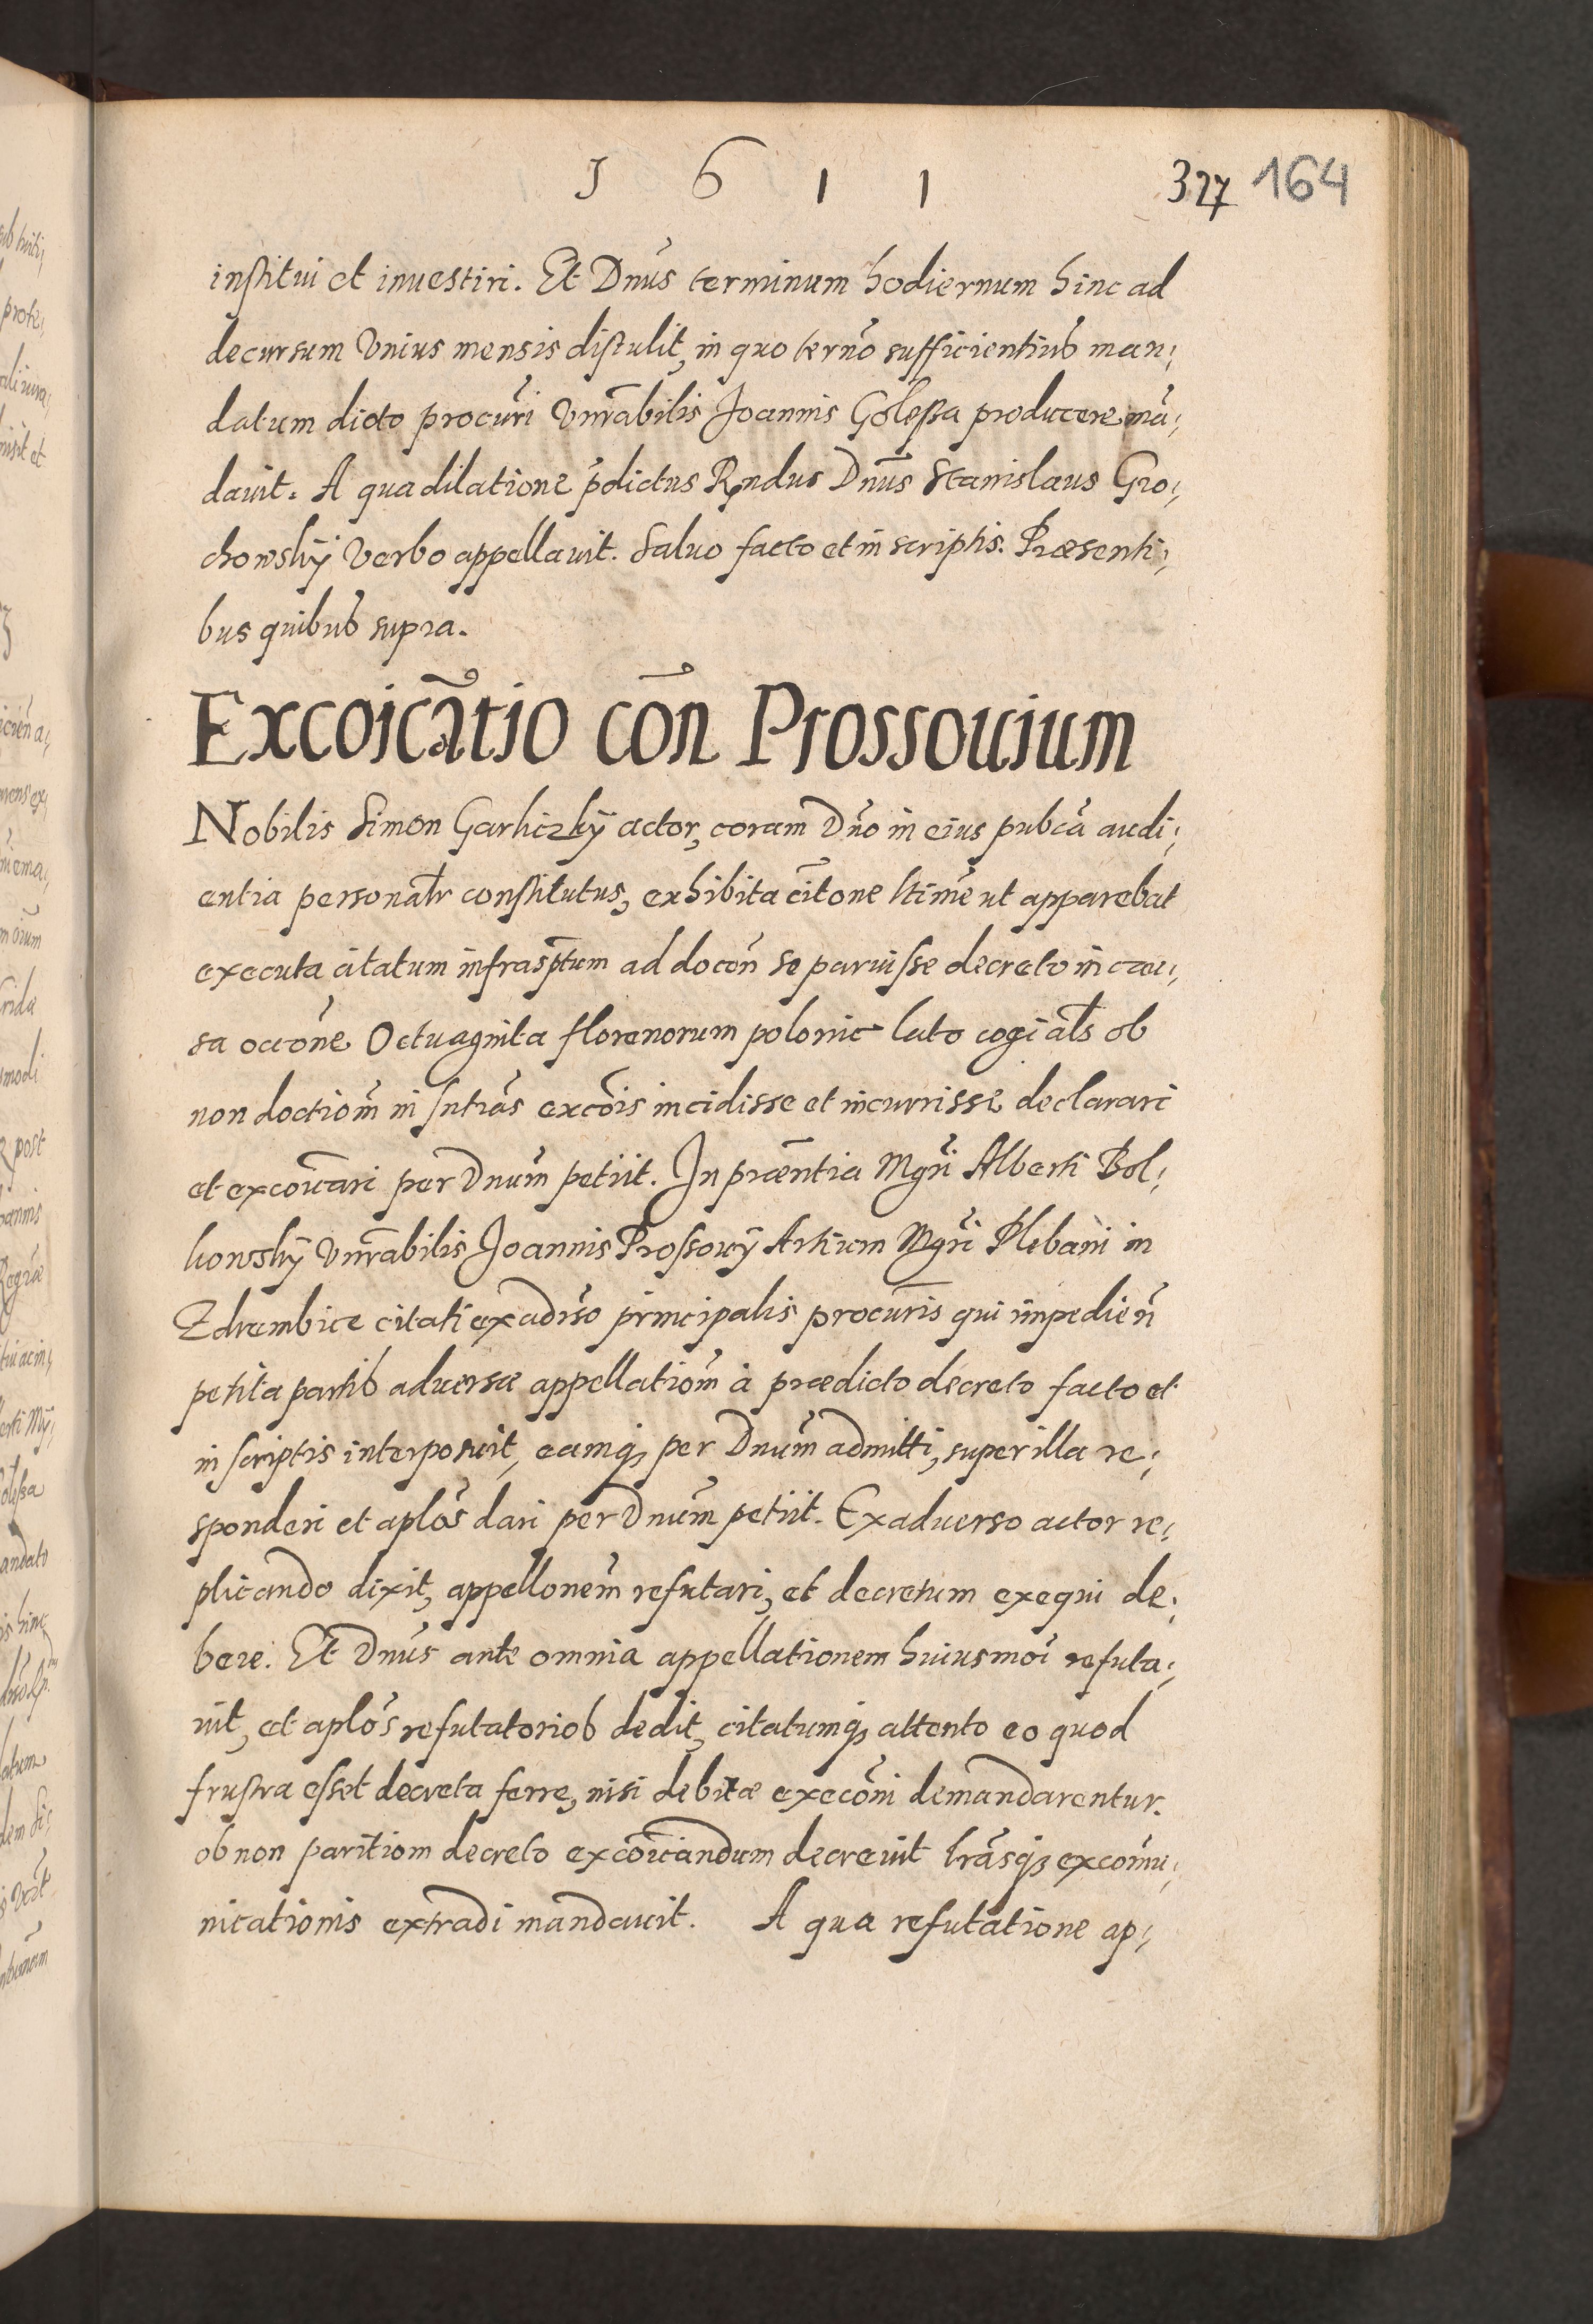 1 6 1 1 327 164
institui et inuestiri. Et Dnūs terminum hodiernum hinc ad
decursum Vnius mensis distulit, in quo ternō sufficientius man;
datum dicto procūri Vnrābilis Joannis Golessa producere mā;
dauit. A qua dilatione p̄dictus Rndus Dnūs Stanislaus Gro;
chowskÿ Verbo appellauit. Saluo facto et in scriptis. Præsenti;
bus quibus supra.
Excoicātio cōn Prossouium
Nobilis Simon Garliczkÿ actor, coram Dnō in eius pubcā audi;
entia personalr̄ constitutus, exhibita cītone ltimē ut apparebat
executa citatum infrasp̄tum ad docōn se paruisse decreto in cau;
sa occōne Octuaginta florenorum polonic lato cogi als̄ ob
non doctiom̄ in sntiās excōis incidisse et incurrisse declarari
et excoīcari per Dnum̄ petiit. In præntia Mgrī Alberti Bol;
kowskÿ Vnrābilis Joannis Prossowÿ Artium Mgrī Plebani in
Zdrembice citati ex adūso principalis procūris qui impedien̄
petita partis aduersæ appellatiom̄ à prædicto decreto facto et
in scriptis interposuit, eamq; per Dnum̄ admitti, super illa re;
sponderi et aplōs dari per Dnum̄ petiit. Ex aduerso actor re;
plicando dixit, appellonem̄ refutari, et decretum exequi de;
bere. Et Dnūs ante omnia appellationem huiusmoī refuta;
uit, et aplōs refutatorios dedit, citatumq; attento eo quod
frustra esset decreta ferre, nisi debitæ execōni demandarentur.
ob non paritiom decreto excoīcandum decreuit lrāsq; excomū;
nicationis extradi mandauit. A qua refutatione ap;